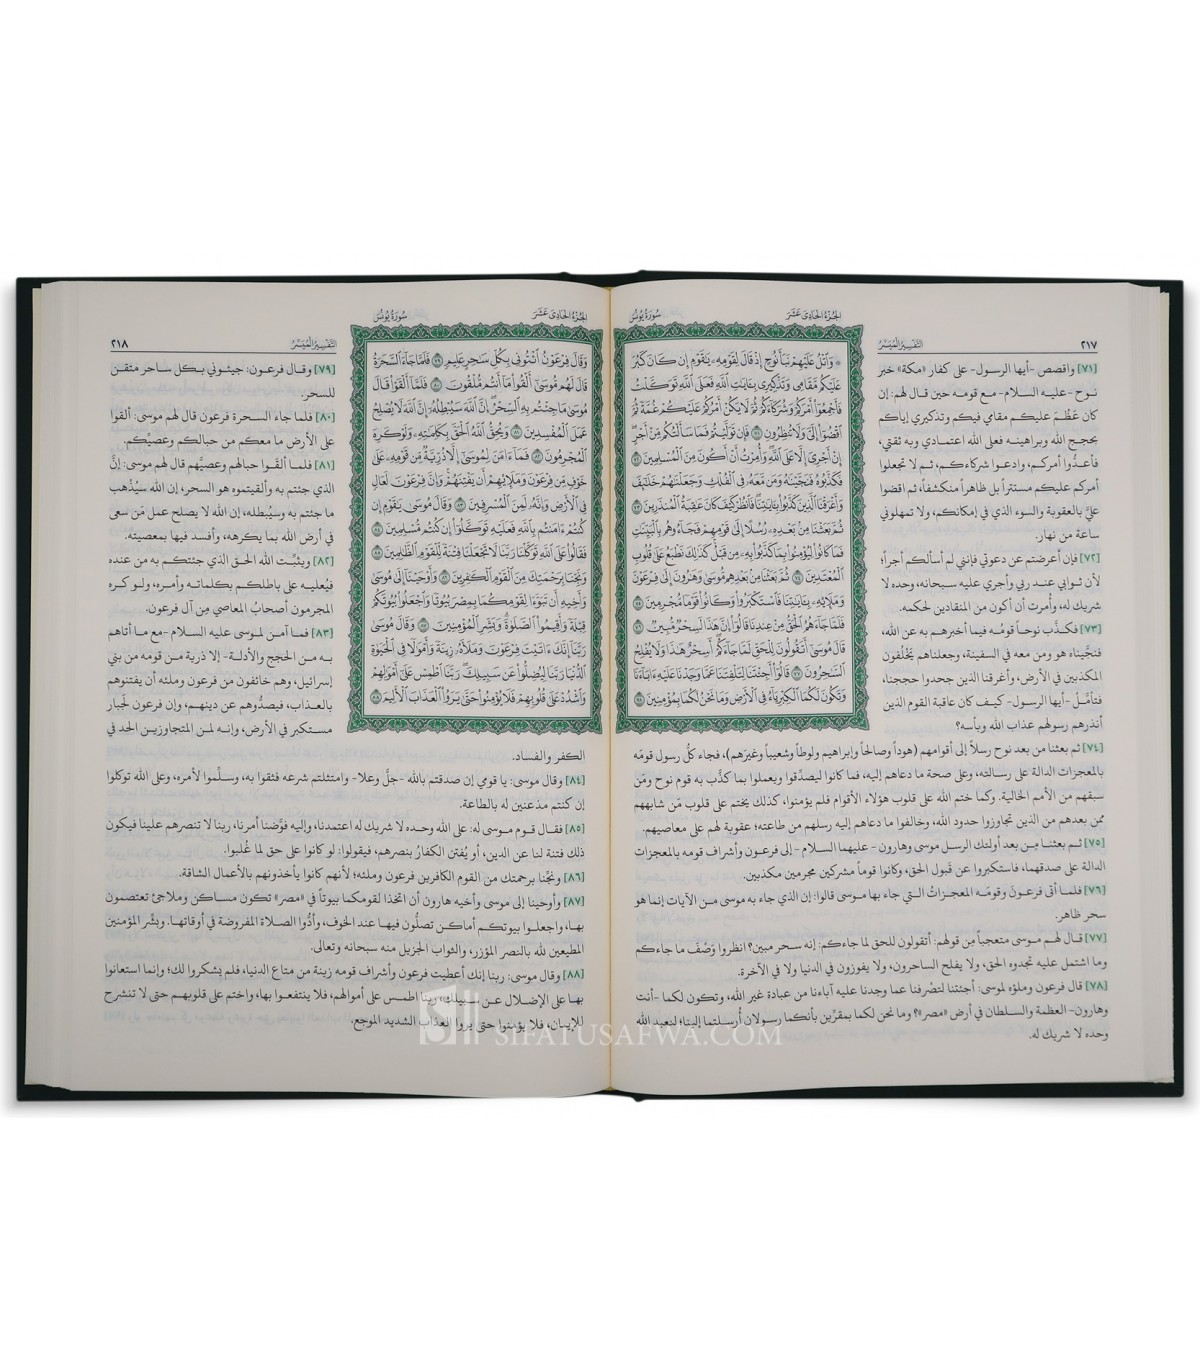 ٢١٧
التفسير الميسر
الجزء الحادي عشر
سورة يونس
۞ وَاتْلُ عَلَيْهِمْ نَبَأَ نُوحٍ إِذْ قَالَ لِقَوْمِهِ يَاقَوْمِ إِن كَانَ كَبُرَ
عَلَيْكُم مَّقَامِي وَتَذْكِيرِي بِآيَاتِ اللَّهِ فَعَلَى اللَّهِ تَوَكَّلْتُ
فَأَجْمِعُوا أَمْرَكُمْ وَشُرَكَاءَكُمْ ثُمَّ لَا يَكُنْ أَمْرُكُمْ عَلَيْكُمْ غُمَّةً ثُمَّ
اقْضُوا إِلَيَّ وَلَا تُنظِرُونِ ٧١ فَإِن تَوَلَّيْتُمْ فَمَا سَأَلْتُكُم مِّنْ أَجْرٍ
إِنْ أَجْرِيَ إِلَّا عَلَى اللَّهِ وَأُمِرْتُ أَنْ أَكُونَ مِنَ الْمُسْلِمِينَ ٧٢
فَكَذَّبُوهُ فَنَجَّيْنَاهُ وَمَن مَّعَهُ فِي الْفُلْكِ وَجَعَلْنَاهُمْ خَلَائِفَ
وَأَغْرَقْنَا الَّذِينَ كَذَّبُوا بِآيَاتِنَا فَانظُرْ كَيْفَ كَانَ عَاقِبَةُ الْمُنذَرِينَ ٧٣
ثُمَّ بَعَثْنَا مِن بَعْدِهِ رُسُلًا إِلَى قَوْمِهِمْ فَجَاءُوهُم بِالْبَيِّنَاتِ
فَمَا كَانُوا لِيُؤْمِنُوا بِمَا كَذَّبُوا بِهِ مِن قَبْلُ كَذَلِكَ نَطْبَعُ عَلَى قُلُوبِ
الْمُعْتَدِينَ ٧٤ ثُمَّ بَعَثْنَا مِن بَعْدِهِم مُّوسَى وَهَارُونَ إِلَى فِرْعَوْنَ
وَمَلَإِيْهِ بِآيَاتِنَا فَاسْتَكْبَرُوا وَكَانُوا قَوْمًا مُّجْرِمِينَ ٧٥
فَلَمَّا جَاءَهُمُ الْحَقُّ مِنْ عِندِنَا قَالُوا إِنَّ هَذَا لَسِحْرٌ مُّبِينٌ ٧٦
قَالَ مُوسَى أَتَقُولُونَ لِلْحَقِّ لَمَّا جَاءَكُمْ أَسِحْرٌ هَذَا وَلَا يُفْلِحُ
السَّاحِرُونَ ٧٧ قَالُوا أَجِئْتَنَا لِتَلْفِتَنَا عَمَّا وَجَدْنَا عَلَيْهِ آبَاءَنَا
وَتَكُونَ لَكُمَا الْكِبْرِيَاءُ فِي الْأَرْضِ وَمَا نَحْنُ لَكُمَا بِمُؤْمِنِينَ ٧٨
[٧١] واقصص -أيها الرسول- على كفار «مكة» خبر
نوح -عليه السلام- مع قومه حين قال لهم: إن
كان عَظُمَ عليكم مقامي فيكم وتذكيري إياكم
بحجج الله وبراهينه فعلى الله اعتمادي وبه ثقتي،
فأعدُّوا أمركم، وادعوا شركاءكم، ثم لا تجعلوا
أمركم عليكم مستتراً بل ظاهراً منكشفاً، ثم اقضوا
عليَّ بالعقوبة والسوء الذي في إمكانكم، ولا تمهلوني
ساعة من نهار.
[٧٢] فإن أعرضتم عن دعوتي فإنني لم أسألكم أجراً؛
لأن ثوابي عند ربي وأجري عليه سبحانه، وحده لا
شريك له، وأُمرت أن أكون من المنقادين لحكمه.
[٧٣] فكذَّب نوحاً قومُه فيما أخبرهم به عن الله،
فنجَّيناه هو ومن معه في السفينة، وجعلناهم يَخْلُفون
المكذبين في الأرض، وأغرقنا الذين جحدوا حججنا،
فتأمَّل -أيها الرسول- كيف كان عاقبة القوم الذين
أنذرهم رسولهم عذاب الله وبأسه؟
[٧٤] ثم بعثنا من بعد نوح رسلاً إلى أقوامهم (هوداً وصالحاً وإبراهيم ولوطاً وشعيباً وغيرَهم)، فجاء كلُّ رسول قومَه
بالمعجزات الدالة على رسالته، وعلى صحة ما دعاهم إليه، فما كانوا ليصدِّقوا ويعملوا بما كذَّب به قوم نوح ومَن
سبقهم من الأمم الخالية. وكما ختم الله على قلوب هؤلاء الأقوام فلم يؤمنوا، كذلك يختم على قلوب مَن شابههم
ممن بعدهم من الذين تجاوزوا حدود الله، وخالفوا ما دعاهم إليه رسلهم من طاعته؛ عقوبة لهم على معاصيهم.
[٧٥] ثم بعثنا مِن بعد أولئك الرسل موسى وهارون -عليهما السلام- إلى فرعون وأشراف قومه بالمعجزات
الدالة على صدقهما، فاستكبروا عن قبول الحق، وكانوا قوماً مشركين مجرمين مكذبين.
[٧٦] فلما أتى فرعونَ وقومَه المعجزاتُ التي جاء بها موسى قالوا: إن الذي جاء به موسى من الآيات إنما هو
سحر ظاهر.
[٧٧] قال لهم موسى متعجباً مِن قولهم: أتقولون للحق لما جاءكم: إنه سحر مبين؟ انظروا وَصْفَ ما جاءكم
وما اشتمل عليه تجدوه الحق، ولا يفلح الساحرون، ولا يفوزون في الدنيا ولا في الآخرة.
[٧٨] قال فرعون وملؤه لموسى: أجئتنا لتصْرِفنا عما وجدنا عليه آباءنا من عبادة غير الله، وتكون لكما -أنت
وهارون- العظمة والسلطان في أرض «مصر»؟ وما نحن لكما بمقرِّين بأنكما رسولان أُرسلتما إلينا؛ لنعبد الله
وحده لا شريك له.
الجزء الحادي عشر
سورة يونس
التفسير الميسر
٢١٨
وَقَالَ فِرْعَوْنُ ائْتُونِي بِكُلِّ سَاحِرٍ عَلِيمٍ ٧٩ فَلَمَّا جَاءَ السَّحَرَةُ
قَالَ لَهُم مُّوسَى أَلْقُوا مَا أَنتُم مُّلْقُونَ ٨٠ فَلَمَّا أَلْقَوْا قَالَ
مُوسَى مَا جِئْتُم بِهِ السِّحْرُ إِنَّ اللَّهَ سَيُبْطِلُهُ إِنَّ اللَّهَ لَا يُصْلِحُ
عَمَلَ الْمُفْسِدِينَ ٨١ وَيُحِقُّ اللَّهُ الْحَقَّ بِكَلِمَاتِهِ وَلَوْ كَرِهَ
الْمُجْرِمُونَ ٨٢ فَمَا آمَنَ لِمُوسَى إِلَّا ذُرِّيَّةٌ مِّن قَوْمِهِ عَلَى
خَوْفٍ مِّن فِرْعَوْنَ وَمَلَإِيْهِمْ أَن يَفْتِنَهُمْ وَإِنَّ فِرْعَوْنَ لَعَالٍ
فِي الْأَرْضِ وَإِنَّهُ لَمِنَ الْمُسْرِفِينَ ٨٣ وَقَالَ مُوسَى يَاقَوْمِ إِن
كُنتُمْ آمَنتُم بِاللَّهِ فَعَلَيْهِ تَوَكَّلُوا إِن كُنتُم مُّسْلِمِينَ ٨٤
فَقَالُوا عَلَى اللَّهِ تَوَكَّلْنَا رَبَّنَا لَا تَجْعَلْنَا فِتْنَةً لِّلْقَوْمِ الظَّالِمِينَ ٨٥
وَنَجِّنَا بِرَحْمَتِكَ مِنَ الْقَوْمِ الْكَافِرِينَ ٨٦ وَأَوْحَيْنَا إِلَى مُوسَى
وَأَخِيهِ أَن تَبَوَّآ لِقَوْمِكُمَا بِمِصْرَ بُيُوتًا وَاجْعَلُوا بُيُوتَكُمْ
قِبْلَةً وَأَقِيمُوا الصَّلَاةَ وَبَشِّرِ الْمُؤْمِنِينَ ٨٧ وَقَالَ مُوسَى
رَبَّنَا إِنَّكَ آتَيْتَ فِرْعَوْنَ وَمَلَأَهُ زِينَةً وَأَمْوَالًا فِي الْحَيَاةِ
الدُّنْيَا رَبَّنَا لِيُضِلُّوا عَن سَبِيلِكَ رَبَّنَا اطْمِسْ عَلَى أَمْوَالِهِمْ
وَاشْدُدْ عَلَى قُلُوبِهِمْ فَلَا يُؤْمِنُوا حَتَّى يَرَوُا الْعَذَابَ الْأَلِيمَ ٨٨
[٧٩] وقال فرعون: جيئوني بكل ساحر متقن
للسحر.
[٨٠] فلما جاء السحرة فرعون قال لهم موسى: ألقوا
على الأرض ما معكم من حبالكم وعصيِّكم.
[٨١] فلما ألقَوا حبالهم وعصيَّهم قال لهم موسى: إنَّ
الذي جئتم به وألقيتموه هو السحر، إن الله سيُذْهب
ما جئتم به وسيُبطله، إن الله لا يصلح عمل مَن سعى
في أرض الله بما يكرهه، وأفسد فيها بمعصيته.
[٨٢] ويثبِّت الله الحق الذي جئتكم به من عنده
فيُعليه على باطلكم بكلماته وأمره، ولو كره
المجرمون أصحابُ المعاصي مِن آل فرعون.
[٨٣] فما آمن لموسى عليه السلام -مع ما أتاهم
به من الحجج والأدلة- إلا ذرية من قومه من بني
إسرائيل، وهم خائفون من فرعون وملئه أن يفتنوهم
بالعذاب، فيصدُّوهم عن دينهم، وإن فرعون لَجبار
مستكبر في الأرض، وإنه لمن المتجاوزين الحد في
الكفر والفساد.
[٨٤] وقال موسى: يا قومي إن صدقتم بالله -جلَّ وعلا- وامتثلتم شرعه فثقوا به، وسلِّموا لأمره، وعلى الله توكلوا
إن كنتم مذعنين له بالطاعة.
[٨٥] فقال قوم موسى له: على الله وحده لا شريك له اعتمدنا، وإليه فوَّضنا أمرنا، ربنا لا تنصرهم علينا فيكون
ذلك فتنة لنا عن الدين، أو يُفتن الكفارُ بنصرهم، فيقولوا: لو كانوا على حق لما غُلبوا.
[٨٦] ونجِّنا برحمتك من القوم الكافرين فرعون وملئه؛ لأنهم كانوا يأخذونهم بالأعمال الشاقة.
[٨٧] وأوحينا إلى موسى وأخيه هارون أن اتخذا لقومكما بيوتاً في «مصر» تكون مساكن وملاجئ تعتصمون
بها، واجعلوا بيوتكم أماكن تصلُّون فيها عند الخوف، وأدُّوا الصلاة المفروضة في أوقاتها. وبشِّر المؤمنين
المطيعين لله بالنصر المؤزر، والثواب الجزيل منه سبحانه وتعالى.
[٨٨] وقال موسى: ربنا إنك أعطيت فرعون وأشراف قومه زينة من متاع الدنيا، فلم يشكروا لك؛ وإنما استعانوا
بها على الإضلال عن سبيلك، ربنا اطمس على أموالهم، فلا ينتفعوا بها، واختم على قلوبهم حتى لا تنشرح
للإيمان، فلا يؤمنوا حتى يروا العذاب الشديد الموجع.
SIFATUSAFWA.COM